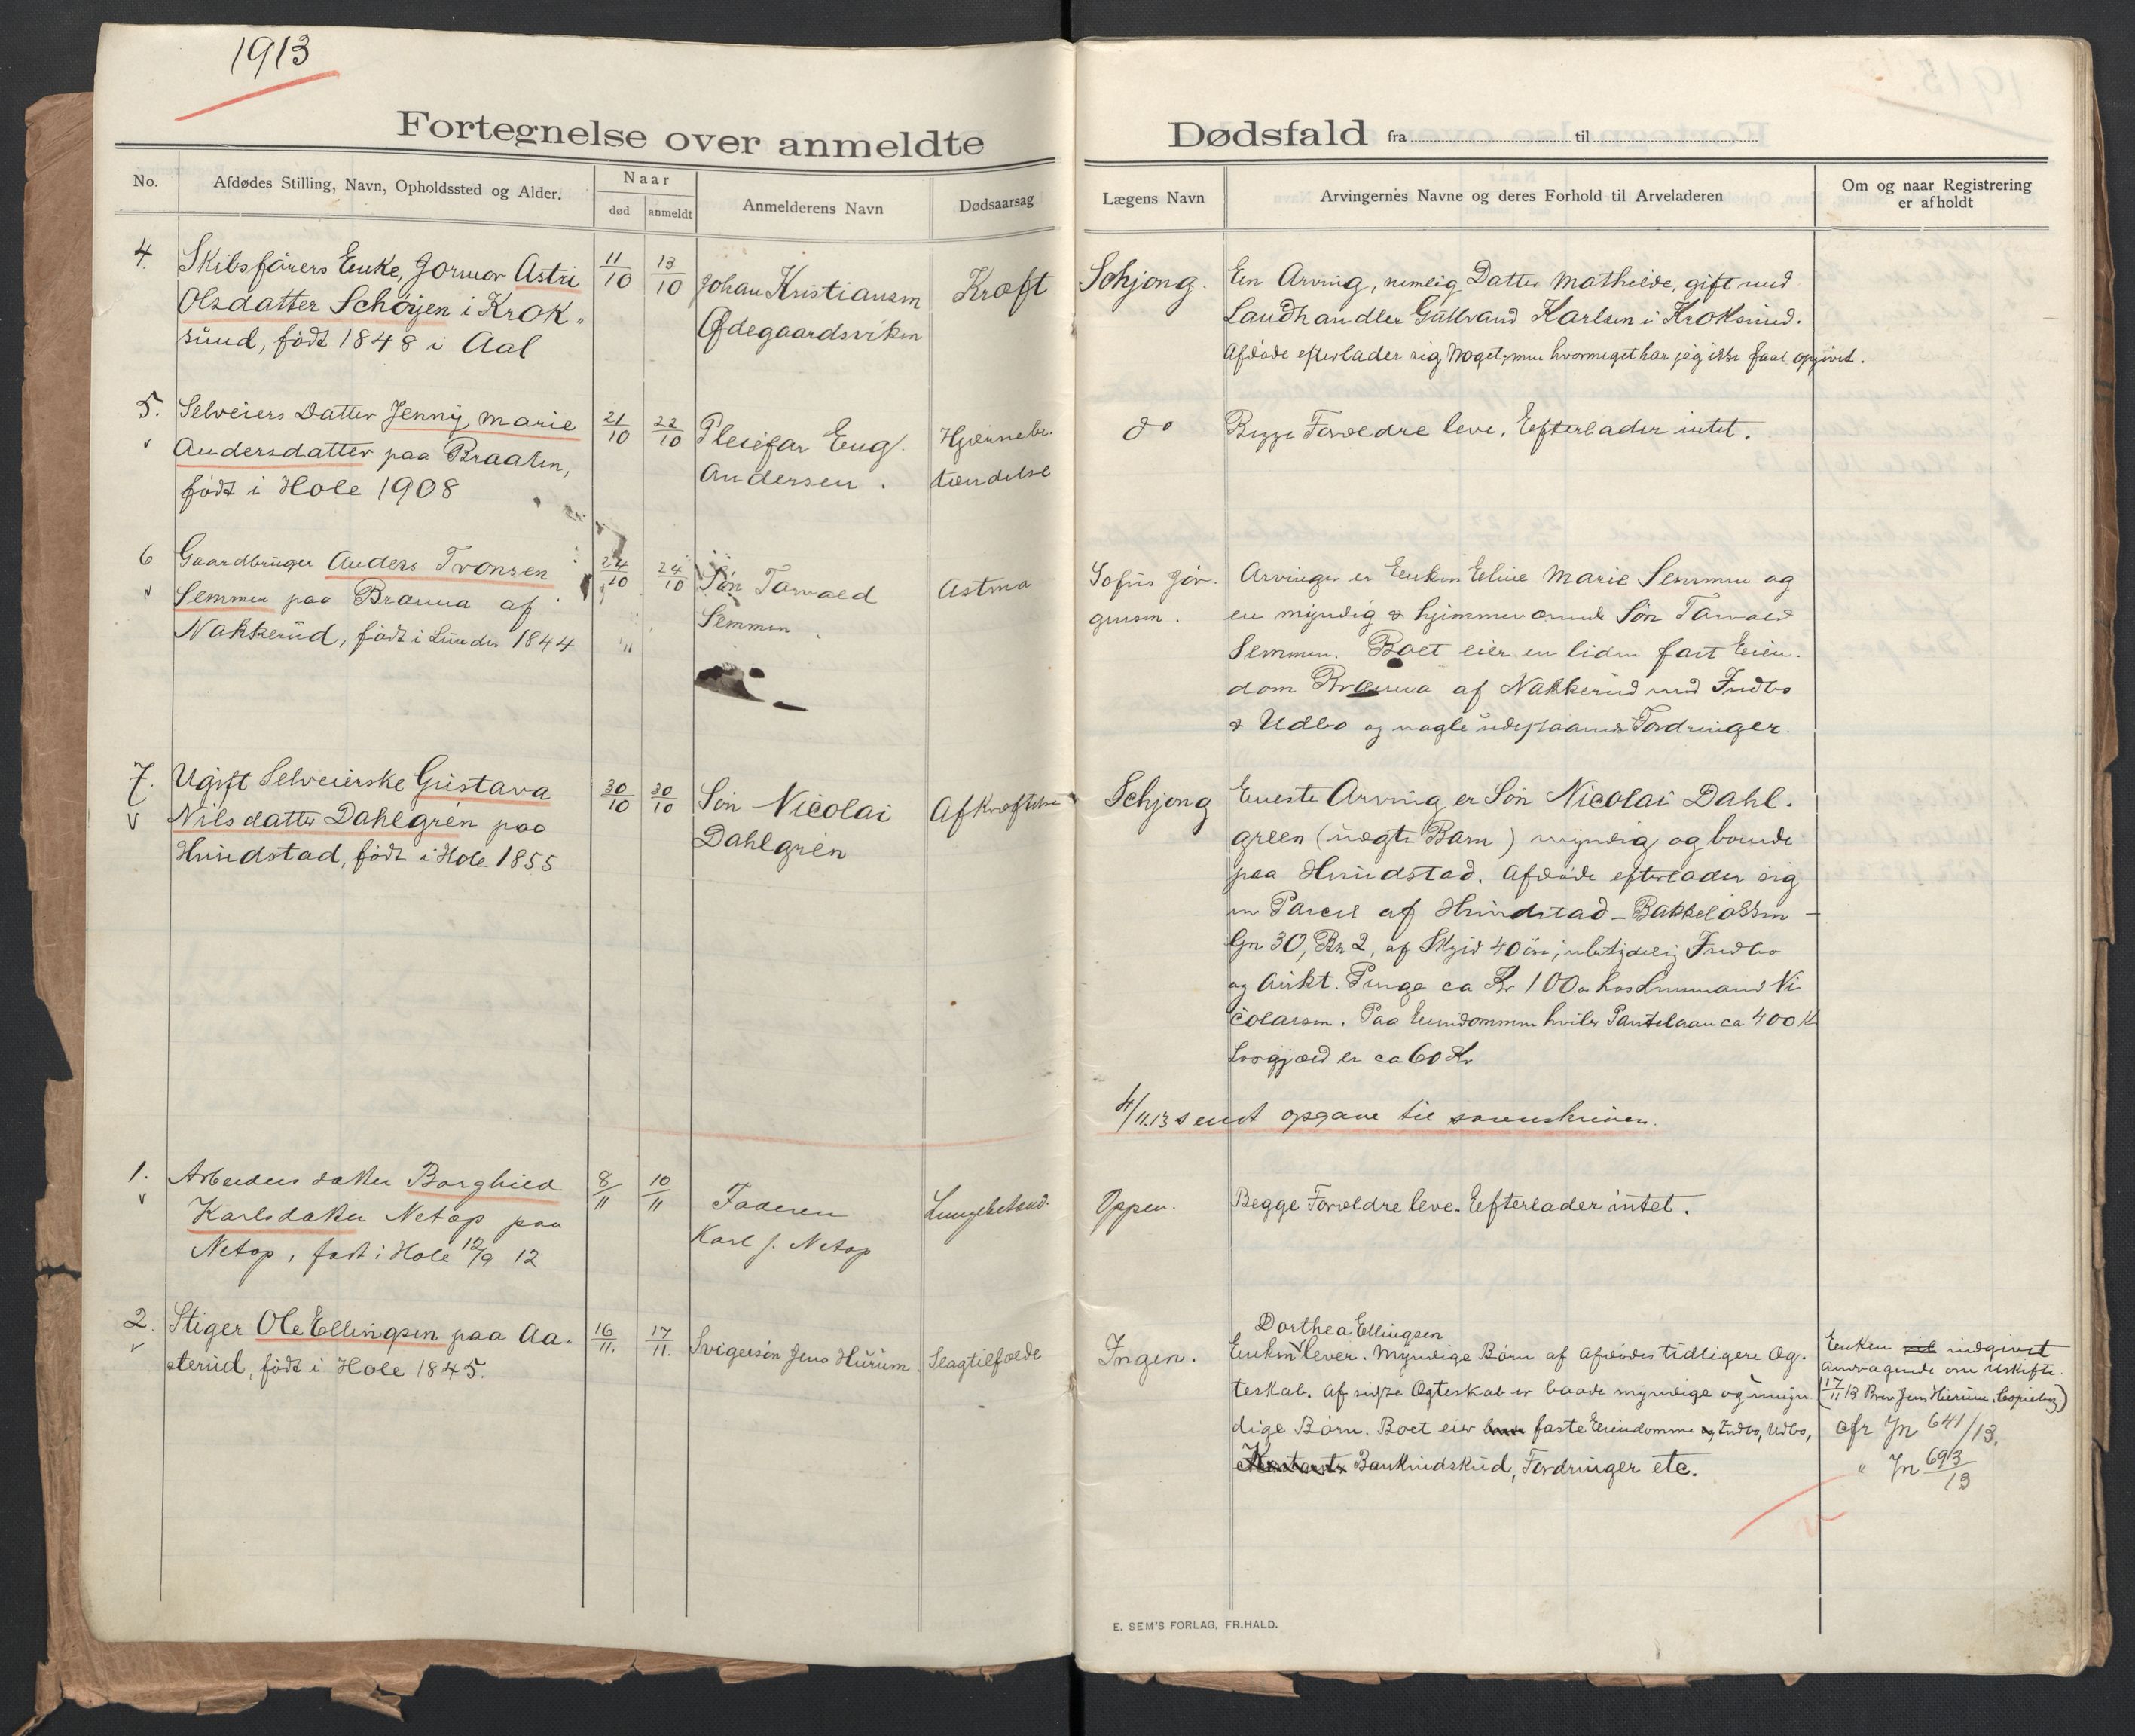 1913
Fortegnelse over anmeldte
Dødsfald fra til
No.
Afdødes Stilling, Navn, Opholdssted og Alder.
Naar
død
anmeldt
Anmelderens Navn
Dødsaarsag
Lægens Navn
Arvingernes Navne og deres Forhold til Arveladeren
Om og naar Registrering
er afholdt
4.
Skibsførers Enke, Jormor Astri
Olsdatter Schøyen i Krok„
sund, født 1848 i Aal
11/10
13/10
Johan Kristiansen
Ødegaardsviken
Kræft
Schjong.
En Arving, nemlig Datter Mathilde, gift med
Landhandler Gulbrand Karlsen i Kroksund.
Afdøde efterlader sig Noget, men hvormeget har jeg ikke faat opgivet.
5.
Selveiers Datter Jenny Marie
Andersdatter paa Braaten,
født i Hole 1908
21/10
22/10
Pleiefar Eug.
Andersen.
Hjernebe.
tændelse
do
Begge Forældre leve. Efterlader intet.
6
Gaardbruger Anders Tronsen
Semmen paa Brænna af
Nakkerud, født i Lunder 1844
24/10
24/10
Søn Torvald
Semmen.
Astma
Sofus Jør.
gensen.
Arvinger er Enken Eline Marie Semmen og
en myndig & hjemmeværende Søn Torvald
Semmen. Boet eier en liden fast Eien.
dom Brænna af Nakkerud med Indbo
& Udbo og nogle udestaaende Fordringer.
7.
Ugift Selveierske Gustava
Nilsdatter Dahlgren paa
Hundstad, født i Hole 1855
30/10
30/10
Søn Nicolai
Dahlgren
Afkræftelse
Schjong
Eneste Arving er Søn Nicolai Dahl.
green (uægte Barn) myndig og boende
paa Hundstad. Afdøde efterlader sig
en Parcel af Hundstad - Bakkeløkken -
Gn 30, Bn 2, af Skyld 40 øre, ubetydelig Indbo
og Penge ca Kr 100.00 hos Lensmand Ni
colaisen. Paa Eiendommen hviler Pantelaan ca 400 Kr
Løsgjæld er ca 60 Kr
4/11.13 sendt opgave til sorenskriveren.
1.
Arbeiders datter Borghild
Karlsdatter Netop paa
Netop, født i Hole 12/9 12
8/11
10/11
Faderen
Karl J. Netop
Lungebetænd.
Oppen.
Begge Forældre leve. Efterlader intet.
2.
Stiger Ole Ellingsen paa Aa.
sterud, født i Hole 1845.
16/11.
17/11.
Svigersøn Jens Hurum.
Slagtilfælde
Ingen.
Dorthea Ellingsen
Enken lever. Myndige Børn af Afdødes tidligere Æg.
teskab. Af sidste Ægteskab er baade myndige og umyn
dige Børn. Boet eier faste Eiendomme og Indbo, Udbo,
Bankindskud, Fordringer etc.
Enken vil indgivet
Andragende om Uskifte.
(17/11 13 Brev Jens Hurum. Copiebog)
cfr Jn 641/13.
" Jn 693/13
E. SEM'S FORLAG, FR.HALD.